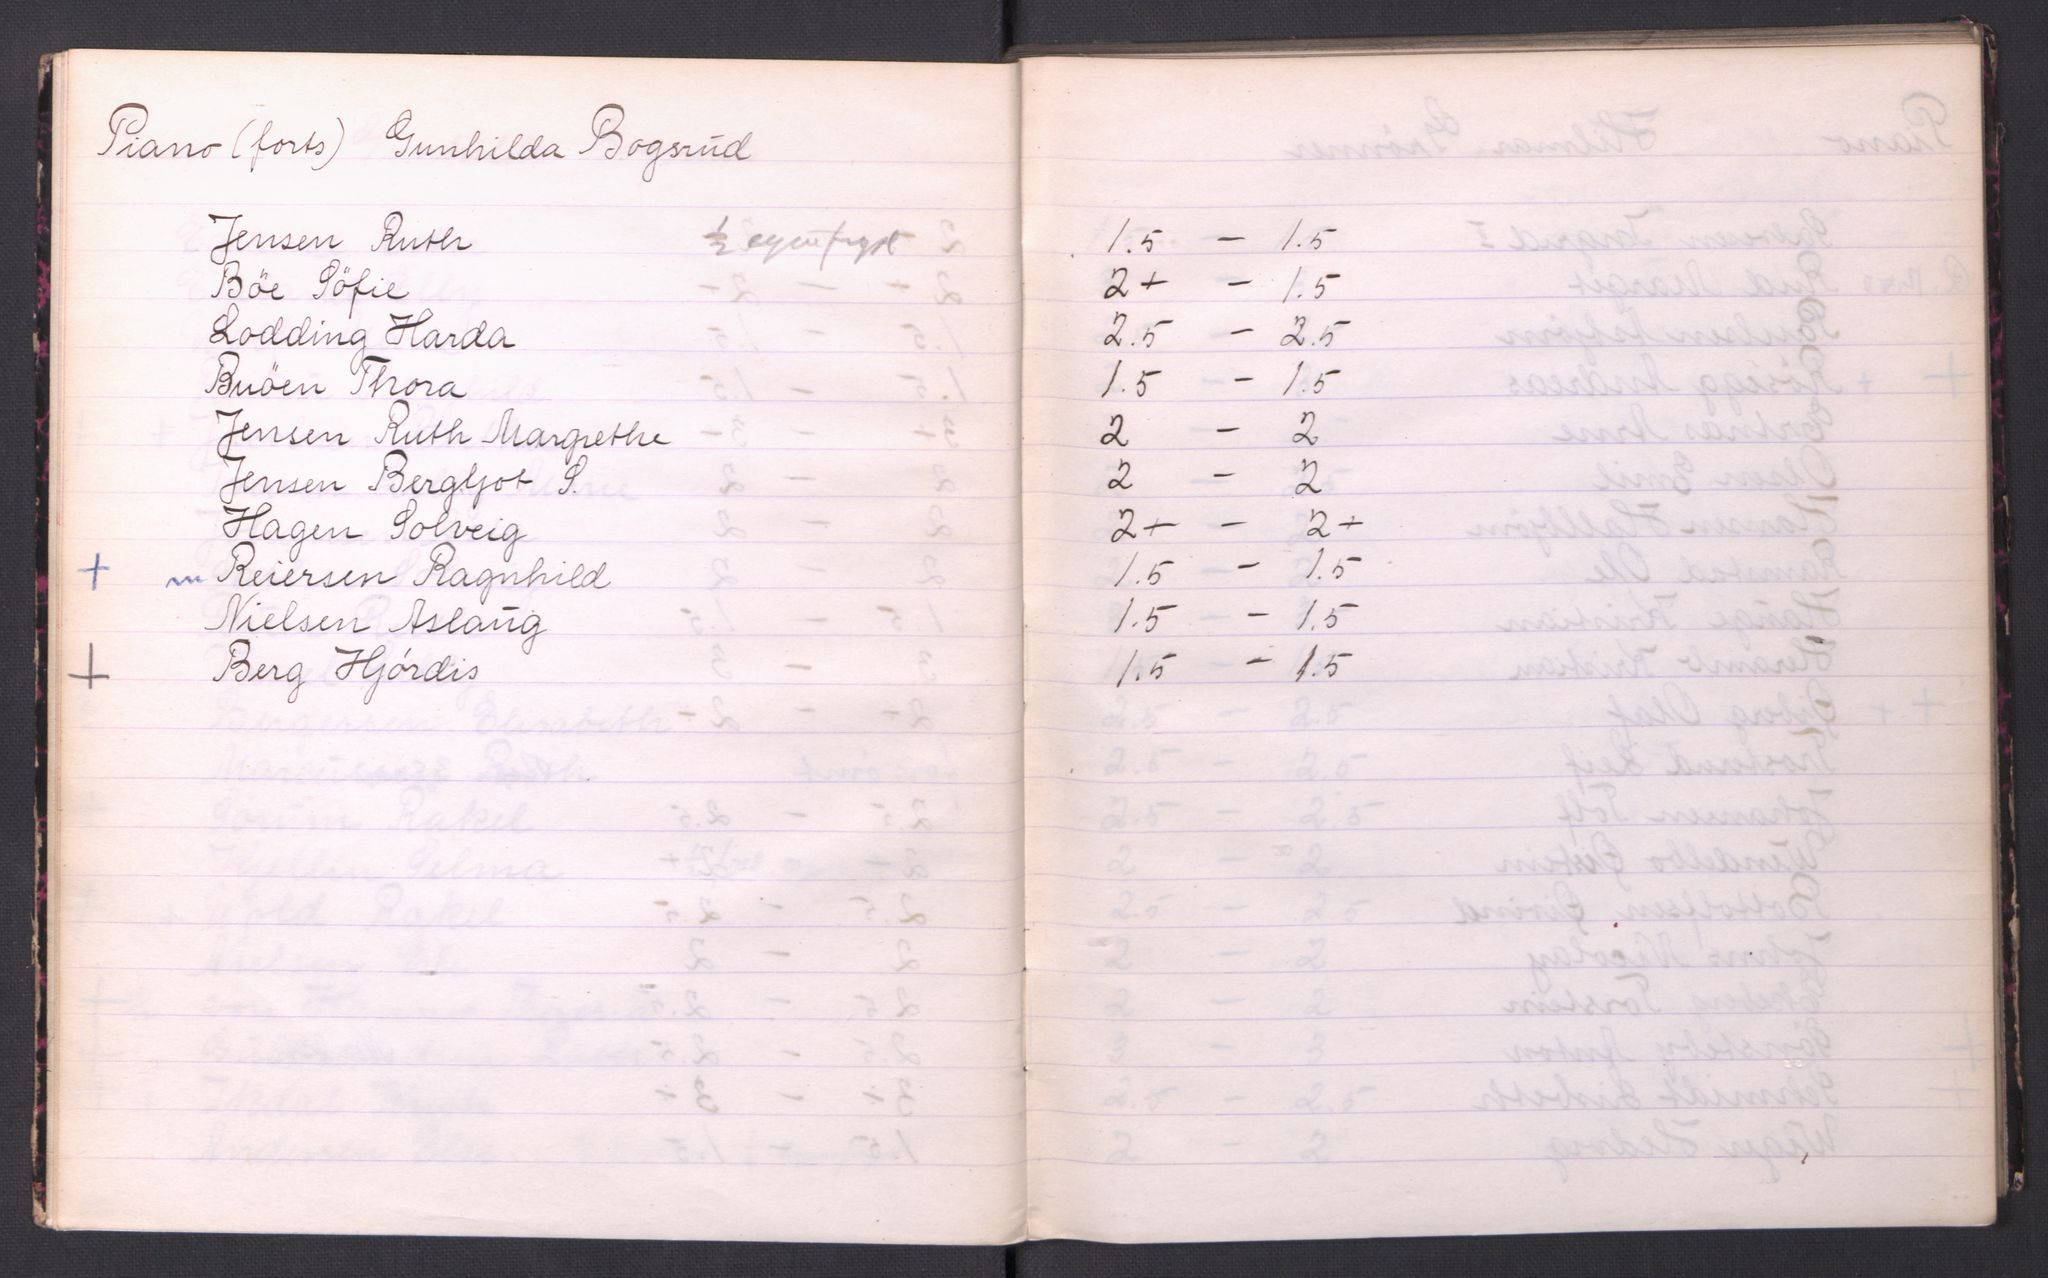 Piano (forts) Gunhilda Bogsrud
Jensen Ruth ½ 1.5 - 1.5
Böe Söfie 2+ - 1.5
Lodding Harda 2.5 - 2.5
Buöen Thora 1.5 - 1.5
Jensen Ruth Margrethe 2 - 2
Jensen Bergljot S. 2 - 2
Hagen Solveig 2+ - 2+
+ Reiersen Ragnhild 1.5 - 1.5
Nielsen Aslaug 1.5 - 1.5
+ Berg Hjórdis 1.5 - 1.5